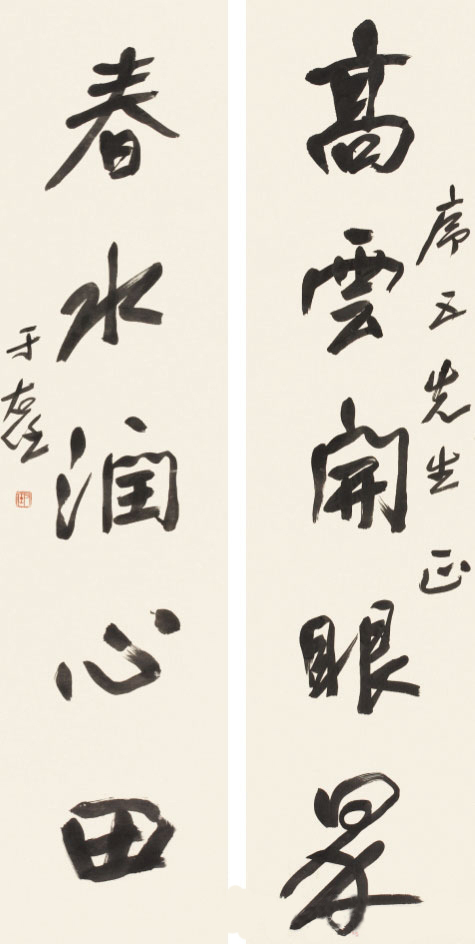 高雲開眼界
席五先生正
春水潤心田
于右任